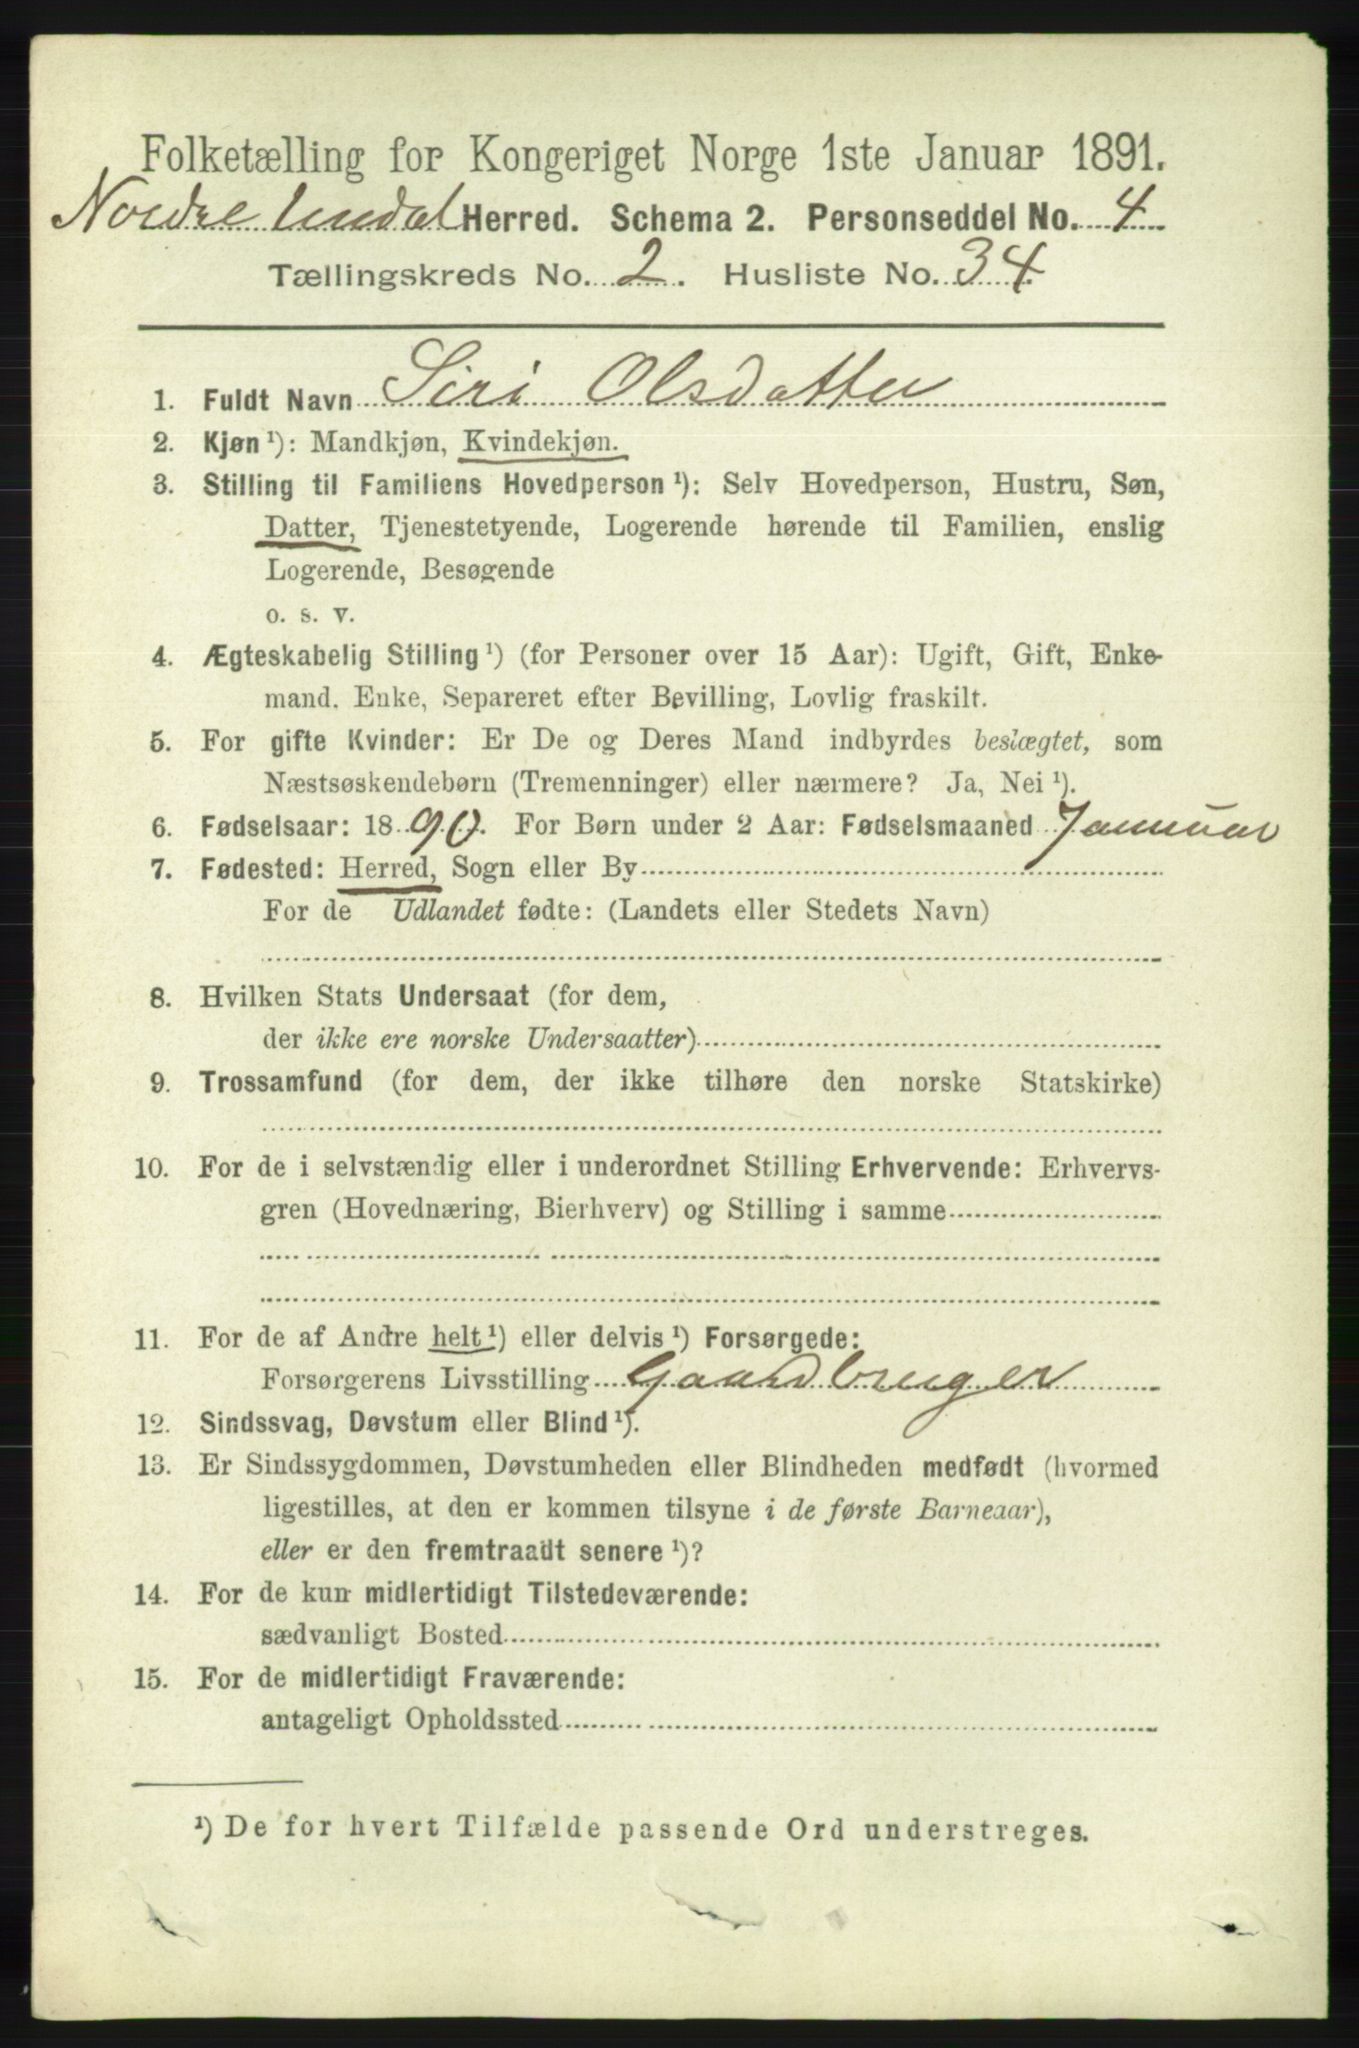 Folketælling for Kongeriget Norge 1ste Januar 1891.
Nordre Undal Herred. Schema 2. Personseddel No. 4
Tællingskreds No. 2. Husliste No. 34
1. Fuldt Navn Siri Olsdatter
2. Kjøn ¹): Mandkjøn, Kvindekjøn.
3. Stilling til Familiens Hovedperson ¹): Selv Hovedperson, Hustru, Søn,
Datter, Tjenestetyende, Logerende hørende til Familien, enslig
Logerende, Besøgende
o. s. v.
4. Ægteskabelig Stilling ¹) (for Personer over 15 Aar): Ugift, Gift, Enke-
mand. Enke, Separeret efter Bevilling, Lovlig fraskilt.
5. For gifte Kvinder: Er De og Deres Mand indbyrdes beslægtet, som
Næstsøskendebørn (Tremenninger) eller nærmere? Ja, Nei ¹).
6. Fødselsaar: 1890. For Børn under 2 Aar: Fødselsmaaned Januar
7. Fødested: Herred, Sogn eller By
For de Udlandet fødte: (Landets eller Stedets Navn)
8. Hvilken Stats Undersaat (for dem,
der ikke ere norske Undersaatter)
9. Trossamfund (for dem, der ikke tilhøre den norske Statskirke)
10. For de i selvstændig eller i underordnet Stilling Erhvervende: Erhvervs-
gren (Hovednæring, Bierhverv) og Stilling i samme
11. For de af Andre helt ¹) eller delvis ¹) Forsørgede:
Forsørgerens Livsstilling Gaardbruger
12. Sindssvag, Døvstum eller Blind ¹).
13. Er Sindssygdommen, Døvstumheden eller Blindheden medfødt (hvormed
ligestilles, at den er kommen tilsyne i de første Barneaar),
eller er den fremtraadt senere ¹)?
14. For de kun midlertidigt Tilstedeværende:
sædvanligt Bosted
15. For de midlertidigt Fraværende:
antageligt Opholdssted
¹) De for hvert Tilfælde passende Ord understreges.